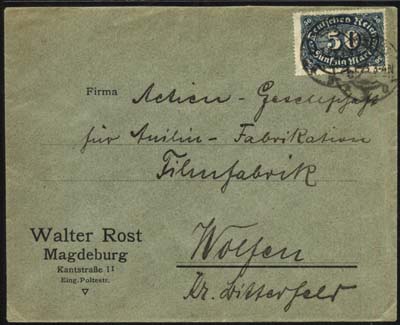 50 50
Deutsches Reich
50
Fünfzig Mark
Firma Actien-Gesellschaft
für Anilin-Fabrikation
Filmfabrik
Walter Rost
Magdeburg
Kantstraße 11
Eing. Poltestr.
Wolfen
Kr. Bitterfeld